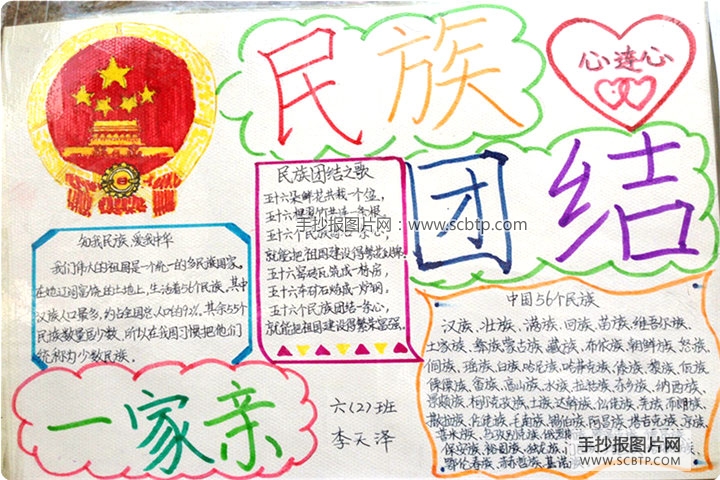 民族
心连心
团结
民族团结之歌
五十六朵鲜花共栽一个位，
五十六根翠竹共连一条根，
五十六个民族
就能把祖国建设得繁荣
五十六窑砖瓦筑成一栋房，
五十六车矿石炼成一炉钢，
五十六个民族团结一条心，
就能把祖国建设得繁荣富强。
手抄报图片网：www.scbtp.com
民族，爱我中华
我们伟大的祖国是一个统一的多民族国家，
在她辽阔富饶的土地上，生活着56个民族，其中
汉族人口最多，约占全国总人口的91%，其余55个
民族数量至少数，所以在我国习惯把他们
统称为少数民族。
中国56个民族
汉族、壮族、满族、回族、苗族、维吾尔族、
土家族、彝族、蒙古族、藏族、布依族、朝鲜族、
侗族、瑶族、白族、哈尼族、哈萨克族、傣族、黎族、
傈僳族、畲族、高山族、水族、拉祜族、东乡族、纳西族、
景颇族、柯尔克孜族、土族、达斡尔族、仫佬族、羌族、
撒拉族、仡佬族、毛南族、锡伯族、阿昌族、塔吉克族、
保安族、裕固族、独龙族、
鄂伦春族、赫哲族、基诺
一家亲
六(2)班
李天泽
手抄报图片网
WWW.SCBTP.COM